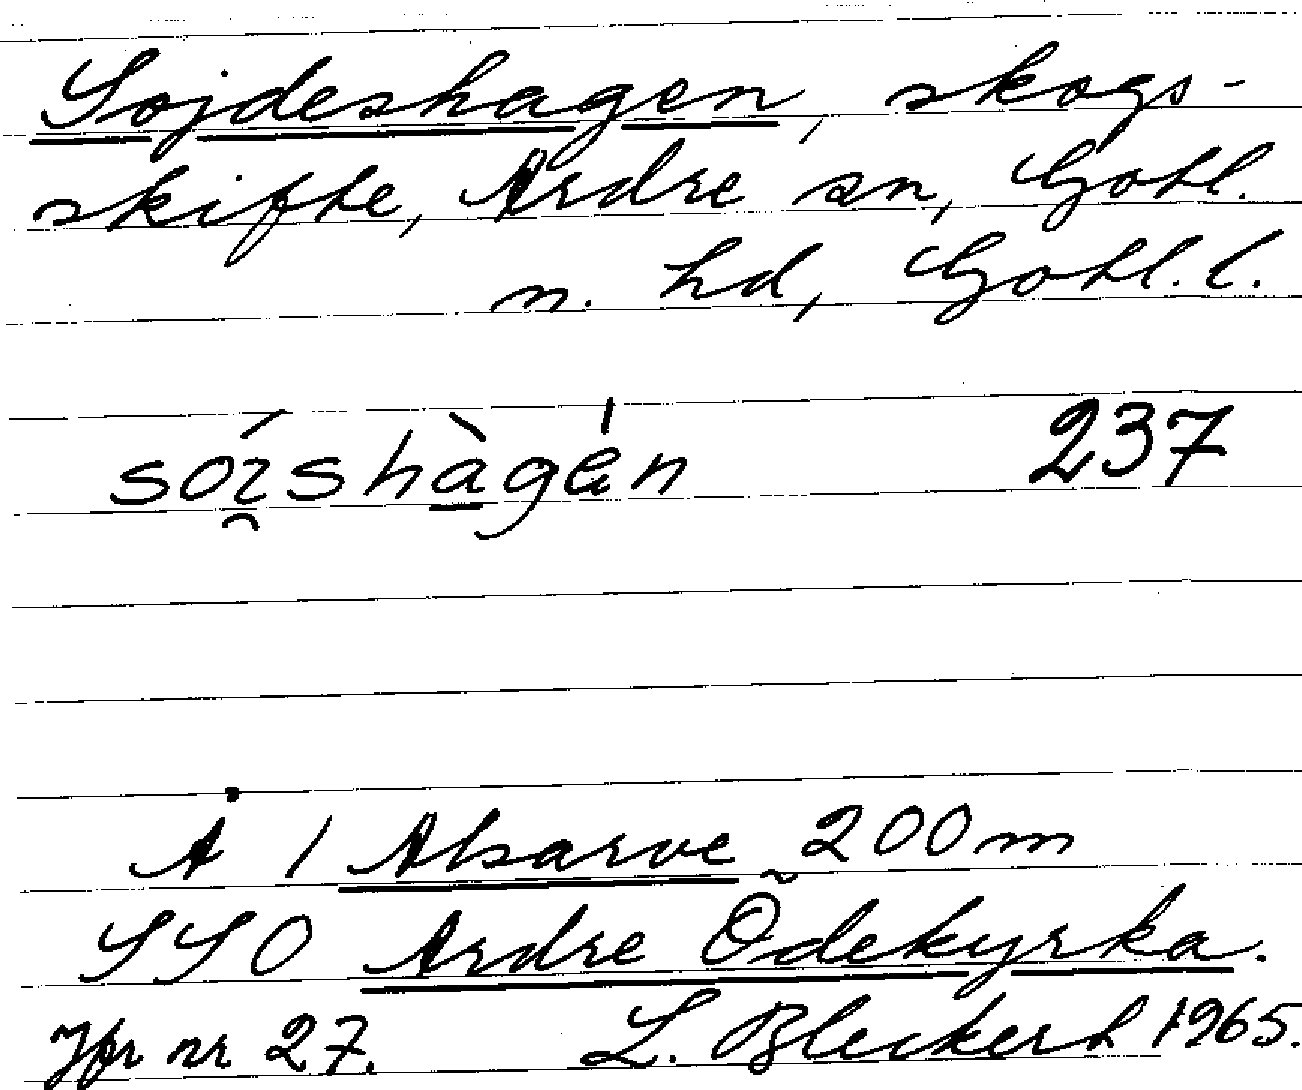 Sojdeshagen, skogs-
skifte, Ardre sn, Gotl.
n. hd, Gotl. l.
sóɪ̯shàgá̇n 237
Å 1 Alsarve 200 m
SSO Ardre Ödekyrka.
Jfr nr 27. L. Bleckert 1965.